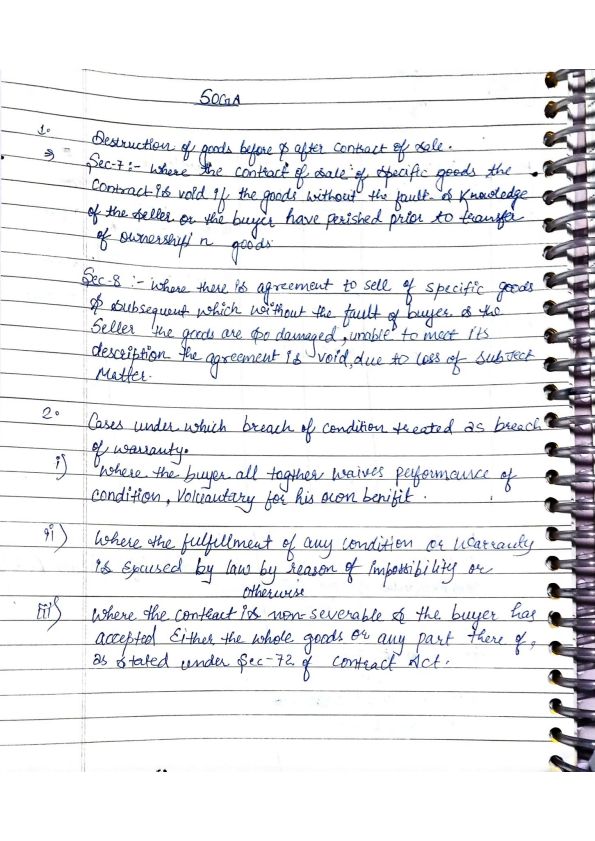 SOGA
1. Destruction of goods before & after contract of sale.
⇒ Sec-7:- where the contract of sale of specific goods the
contract is void if the goods without the fault & Knowledge
of the seller or the buyer have perished prior to transfer
of ownership n goods
Sec-8 :- where there is agreement to sell of specific goods
& subsequent which without the fault of buyer & the
Seller the goods are so damaged, unable to meet its
description the agreement is void, due to loss of subject
Matter.
2. Cases under which breach of condition treated as breach
of warranty.
i) where the buyer all togther waives performance of
condition, volueautary for his own benifit.
ii) where the fulfillment of any condition or warranty
is excused by law by reason of impossibility or
otherwise
iii) where the contract is non-severable & the buyer has
accepted Either the whole goods or any part there of,
as stated under Sec-72 of contract Act.